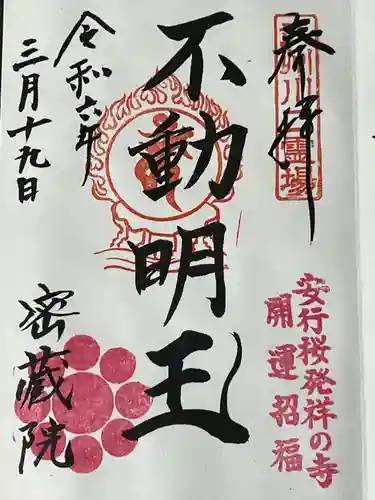 奉拝
安行桜発祥の寺
開運招福
不動明王
令和六年
三月十九日
密蔵院